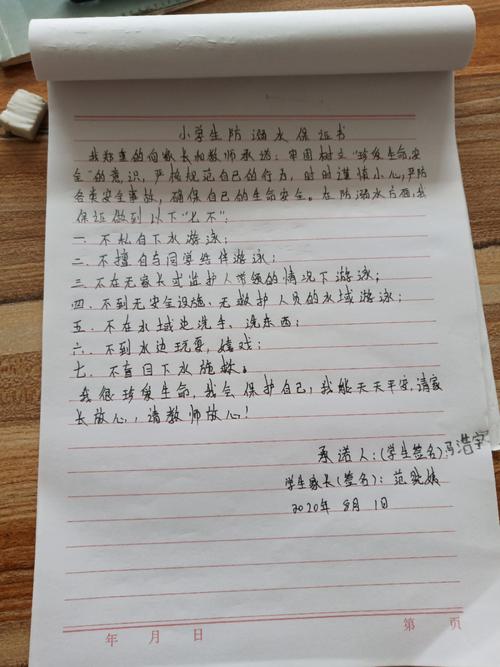 小学生防溺水保证书
我郑重的向家长和教师承诺：牢固树立“珍爱生命，安
全”的意识，严格规范自己的行为，时时谨慎小心，严防
各类安全事故，确保自己的生命安全。在防溺水方面，我
保证做到以下“七不”：
一、不私自下水游泳；
二、不擅自与同学结伴游泳；
三、不在无家长或监护人带领的情况下游泳；
四、不到无安全设施、无救护人员的水域游泳；
五、不在水域边洗手、洗东西；
六、不到水边玩耍，嬉戏；
七、不盲目下水施救。
我很珍爱生命，我会保护自己，我能天天平安，请家
长放心，请教师放心！
承诺人：(学生签名)冯浩宇
学生家长(签名)：范
2020年 8月 1日
年 月 日
第 页